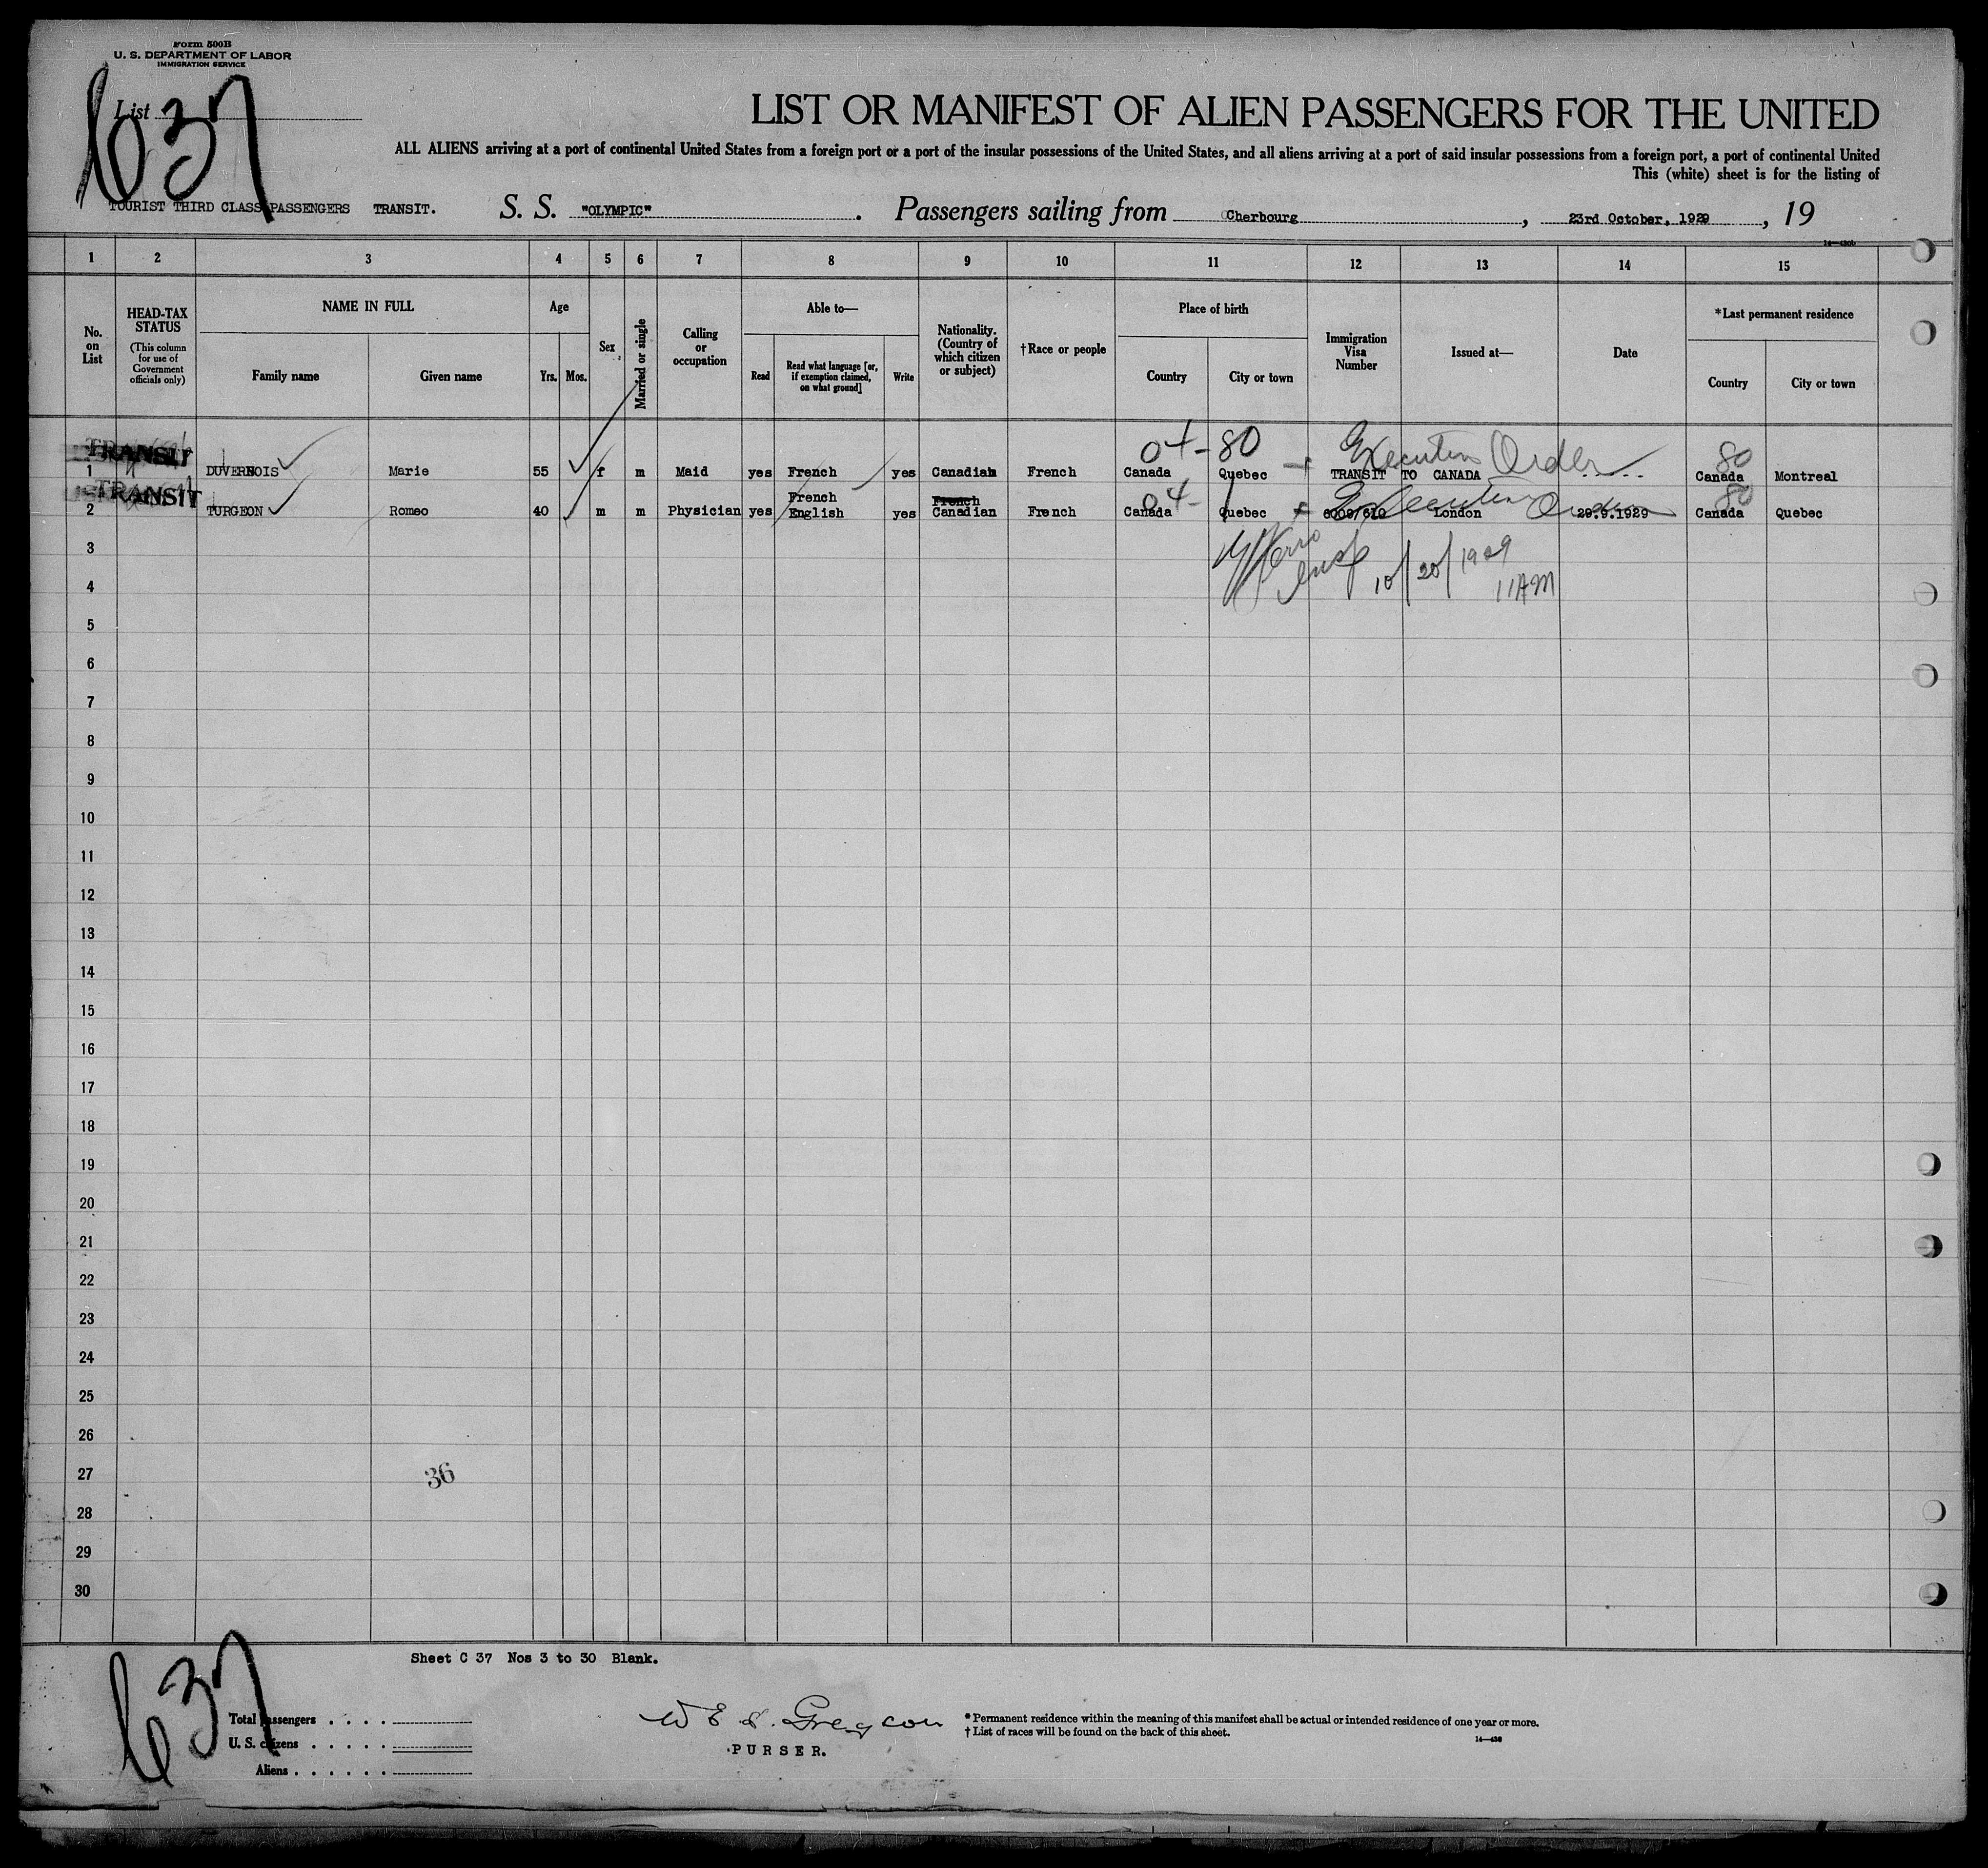 Form 500B
U. S. DEPARTMENT OF LABOR
IMMIGRATION SERVICE
List
637
LIST OR MANIFEST OF ALIEN PASSENGERS FOR THE UNITED
ALL ALIENS arriving at a port of continental United States from a foreign port or a port of the insular possessions of the United States, and all aliens arriving at a port of said insular possessions from a foreign port, a port of continental United
This (white) sheet is for the listing of
TOURIST THIRD CLASS PASSENGERS TRANSIT. S. S. "OLYMPIC". Passengers sailing from Cherbourg, 23rd October, 1929, 19
1 2 3 4 5 6 7 8 9 10 11 12 13 14 15
No. on List
HEAD-TAX STATUS (This column for use of Government officials only)
NAME IN FULL
Family name Given name
Age
Yrs. Mos.
Sex
Married or single
Calling or occupation
Able to—
Read Read what language [or, if exemption claimed, on what ground] Write
Nationality. (Country of which citizen or subject)
†Race or people
Place of birth
Country City or town
Immigration Visa Number
Issued at—
Date
*Last permanent residence
Country City or town
TRANSIT 04-80 Executive Order 80
1 DUVERNOIS Marie 55 f m Maid yes French yes Canadian French Canada Quebec TRANSIT TO CANADA Canada Montreal
TRANSIT French French 04-1 Executive Order 80
2 TURGEON Romeo 40 m m Physician yes English yes Canadian French Canada Quebec London 29.9.1929 Canada Quebec
3
11AM
4
5
6
7
8
9
10
11
12
13
14
15
16
17
18
19
20
21
22
23
24
25
26
27
36
28
29
30
Sheet C 37 Nos 3 to 30 Blank.
637
Total passengers
U. S. citizens
Aliens
PURSER.
* Permanent residence within the meaning of this manifest shall be actual or intended residence of one year or more.
† List of races will be found on the back of this sheet.